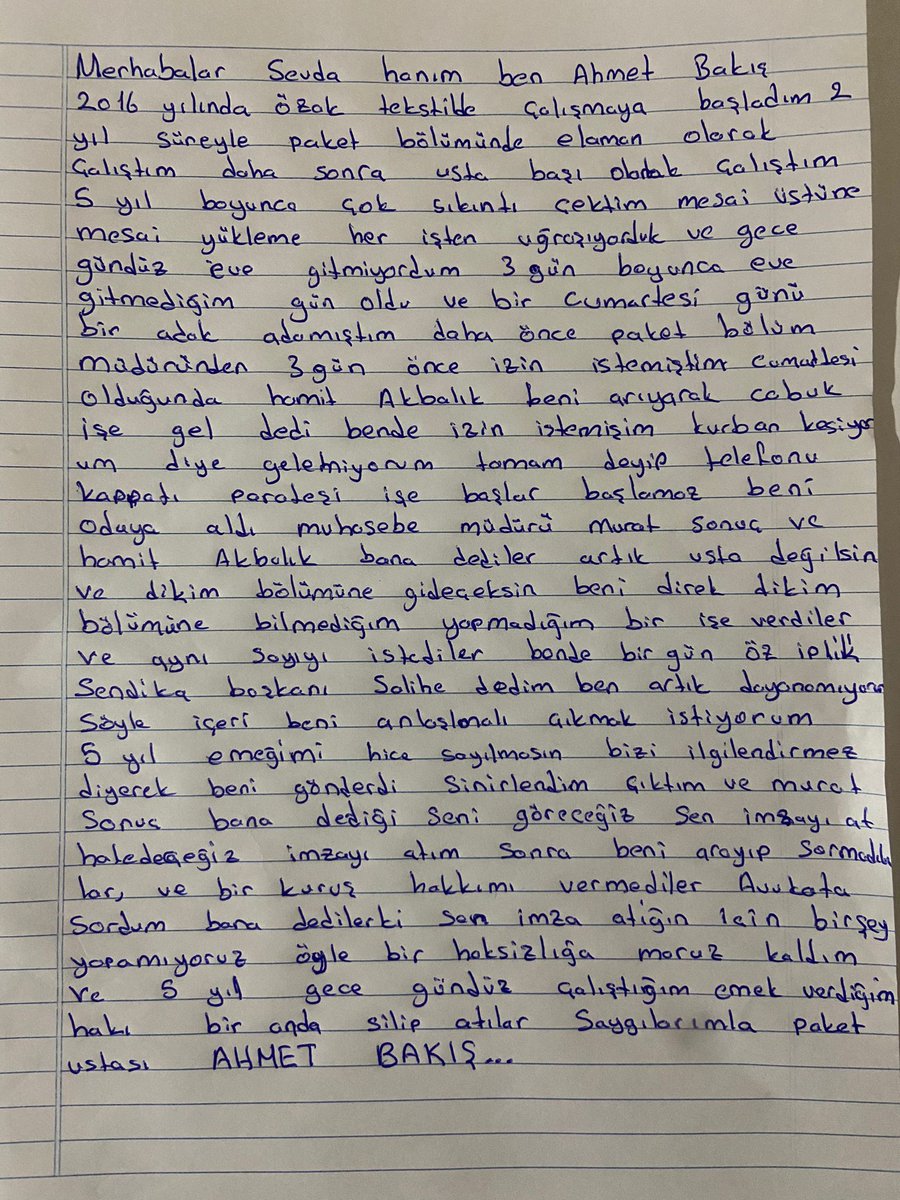 Merhabalar Sevda hanım ben Ahmet Bakış
2016 yılında özak tekstilde çalışmaya başladım 2
yıl süreyle paket bölümünde elaman olarak
çalıştım daha sonra usta başı olarak çalıştım
5 yıl boyunca çok sıkıntı çektim mesai üstüne
mesai yükleme her işten uğraşıyorduk ve gece
gündüz eve gitmiyordum 3 gün boyunca eve
gitmediğim gün oldu ve bir cumartesi günü
bir adak adamıştım daha önce paket bölüm
müdüründen 3 gün önce izin istemiştim cumartesi
olduğunda hamit Akbalık beni arıyarak cabuk
işe gel dedi bende izin istemişim kurban kesiyor
um diye gelemiyorum tamam deyip telefonu
kappatı paratesi işe başlar başlamaz beni
odaya aldı muhasebe müdürü murat sonuç ve
hamit Akbalık bana dediler artık usta değilsin
ve dikim bölümüne gideceksin beni direk dikim
bölümüne bilmediğim yapmadığım bir işe verdiler
ve aynı sayıyı istediler bende bir gün öz iplik
Sendika başkanı Salihe dedim ben artık dayanamıyorum
Söyle içeri beni anlaşlmalı çıkmak istiyorum
5 yıl emeğimi hice sayılmasın bizi ilgilendirmez
diyerek beni gönderdi Sinirlendim çıktım ve murat
Sonuc bana dediği seni göreceğiz Sen imzayı at
haledeceğiz imzayı atım sonra beni arayıp sormadılar
lar, ve bir kuruş hakkımı vermediler Avukata
Sordum bana dedilerki sen imza atığın için birşey
yapamıyoruz öyle bir haksizlığa maruz kaldım
ve 5 yıl gece gündüz çalıştığım emek verdiğim
hakı bir anda silip atılar Saygılarımla paket
ustası AHMET BAKIŞ...